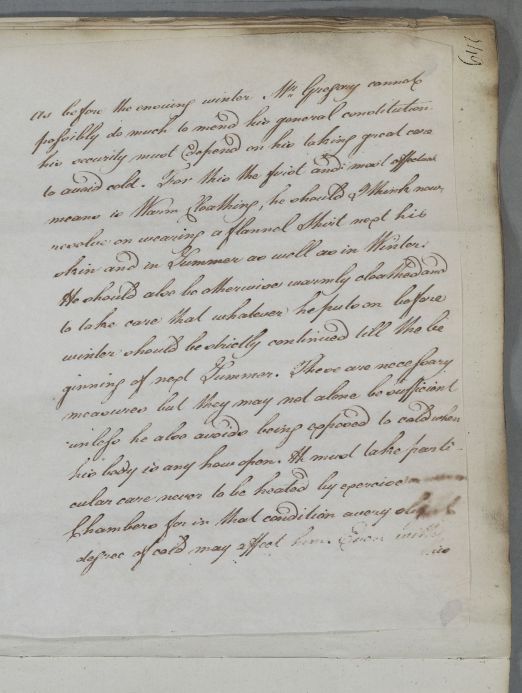 As before the ensuing winter Mr Gregory cannot
possibly do much to mend his general constitution
his security must depend on his taking great care
to avoid cold. For this the first and most effectual
means is Warm Cloathing, he should I think now
resolve on wearing a flannel Shirt next his
skin and in Summer as well as in Winter.
He should also be otherwise warmly cloathed and
to take care that whatever he puts on before
winter should be strictly continued till the be
ginning of next Summer. These are necessary
measures but they may not alone be sufficient
unless he also avoids being exposed to cold when
his body is any how open. He must take parti-
cular care never to be heated by exercise
Chambers for in that condition a very slight
degree of cold may affect him. Even